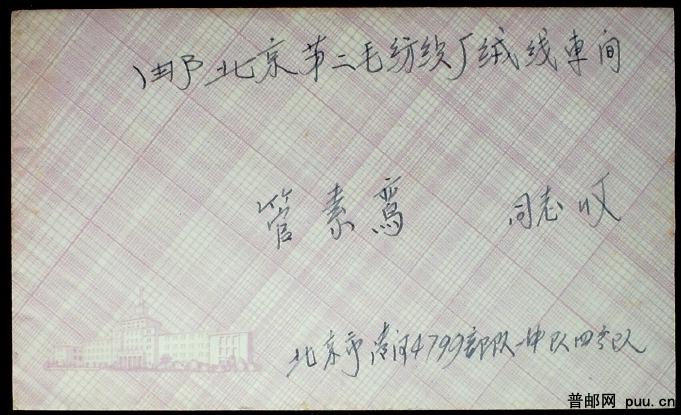 邮 北京第二毛纺织厂绒线車间
管素鸾 同志收
北京市 清河4799部队一中队四分队
普邮网 puu.cn